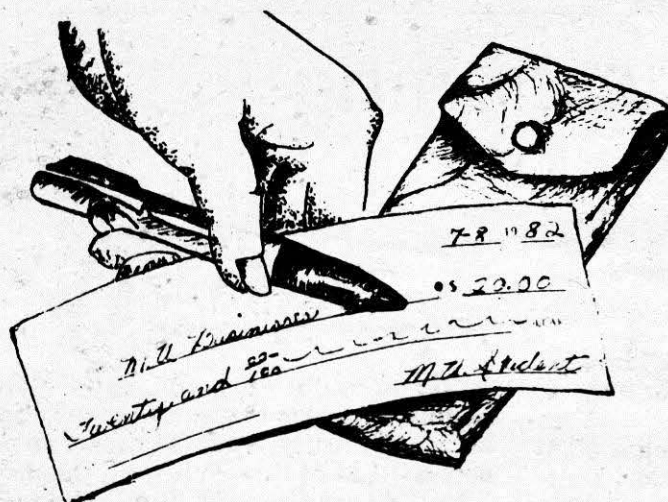 7-8 19 82
$ 20.00
M.U. Businesses
Twenty and 00/100
M.U. Student